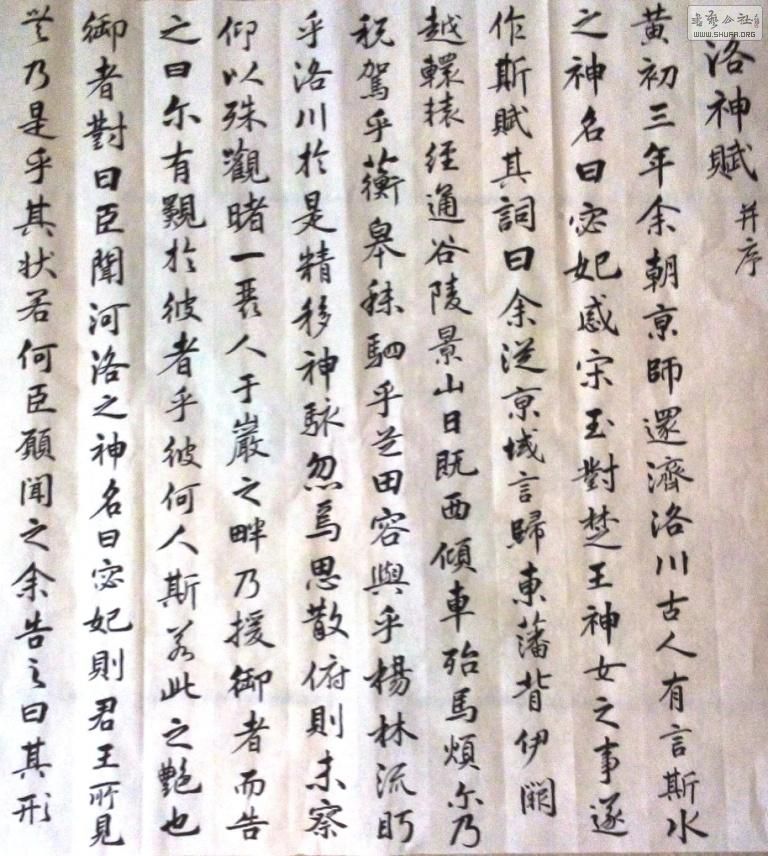 洛神賦 并序
黃初三年余朝京師還濟洛川古人有言斯水
之神名曰宓妃感宋玉對楚王神女之事遂
作斯賦其詞曰余從京域言歸東藩背伊闕
越轘轅經通谷陵景山日既西傾車殆馬煩尔乃
税駕乎蘅皋秣駟乎芝田容與乎楊林流眄
乎洛川於是精移神駭忽焉思散俯則未察
仰以殊觀睹一麗人于巖之畔乃援御者而告
之曰尔有覿於彼者乎彼何人斯若此之艷也
御者對曰臣聞河洛之神名曰宓妃則君王所見
無乃是乎其狀若何臣願聞之余告之曰其形
書藝公社
WWW.SHUFA.ORG